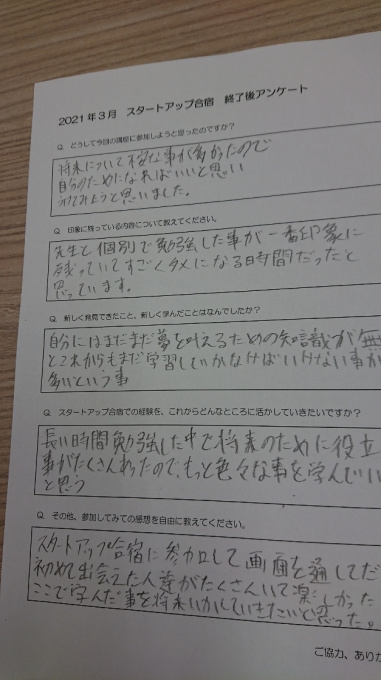 2021年3月 スタートアップ合宿 終了後アンケート
Q. どうして今回の講座に参加しようと思ったのですか？
将来について不安な事が多かったので
自分のためになればいいと思い
うけてみようと思いました。
Q. 印象に残っている内容について教えてください。
先生と個別で勉強した事が一番印象に
残っていてすごくタメになる時間だったと
思っています。
Q. 新しく発見できたこと、新しく学んだことはなんでしたか？
自分にはまだまだ夢を叶えるための知識が無
とこれからもまだ学習していかなければいけない事が
多いという事
Q. スタートアップ合宿での経験を、これからどんなところに活かしていきたいですか？
長い時間勉強した中で将来のために役立
事がたくさんあったので、もっと色々な事を学んでい
と思う
Q. その他、参加してみての感想を自由に教えてください。
スタートアップ合宿に参加して画面を通してだ
初めて出会えた人達がたくさんいて楽しかった
ここで学んだ事を将来いかしていきたいと思った。
ご協力、ありが